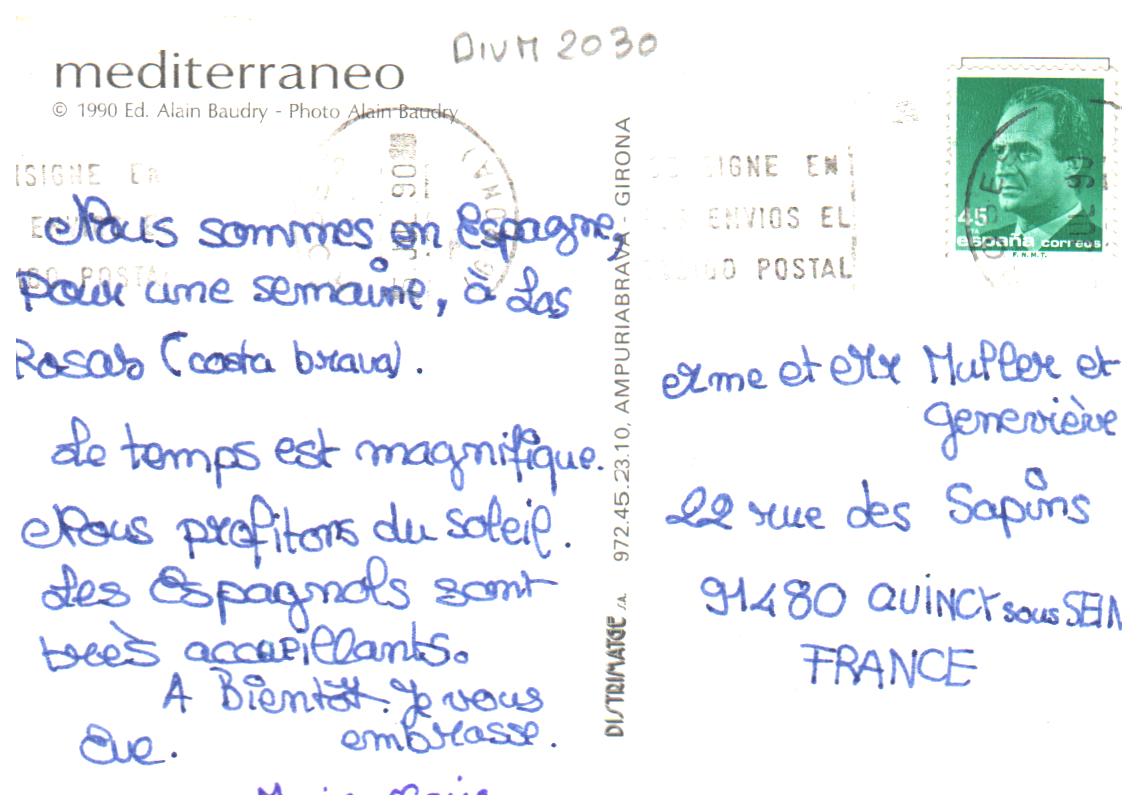 DIVM 2030
mediterraneo
© 1990 Ed. Alain Baudry - Photo Alain Baudry
Nous sommes en Espagne,
pour une semaine, à Las
Rosas (costa brava).
Le temps est magnifique.
Nous profitons du soleil.
Les Espagnols sont
très accueillants.
A Bientôt. Je vous
embrasse.
Eve.
972.45.23.10, AMPURIABRAVA - GIRONA
DISTRIMATGE S.A.
SIGNE EN
ENVIOS EL
POSTAL
45
españa correos
F.N.M.T.
Mme et Mr Muller et
Geneviève
22 rue des Sapins
91480 QUINCY sous SEIN
FRANCE